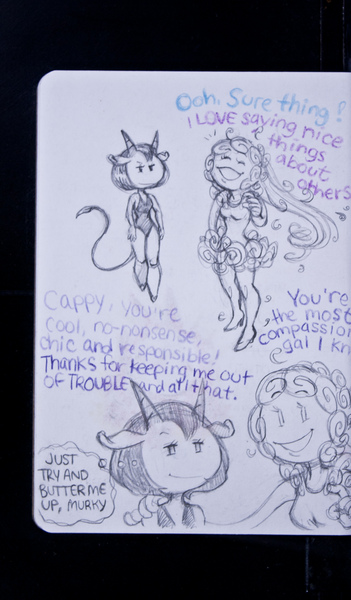 Ooh, Sure thing!
I LOVE saying nice
things
about
others
Cappy, you're
cool, no-nonsense,
chic and responsible!
Thanks for keeping me out
OF TROUBLE and all that.
You're
the most
compassion
gal I kn
JUST
TRY AND
BUTTER ME
UP, MURKY